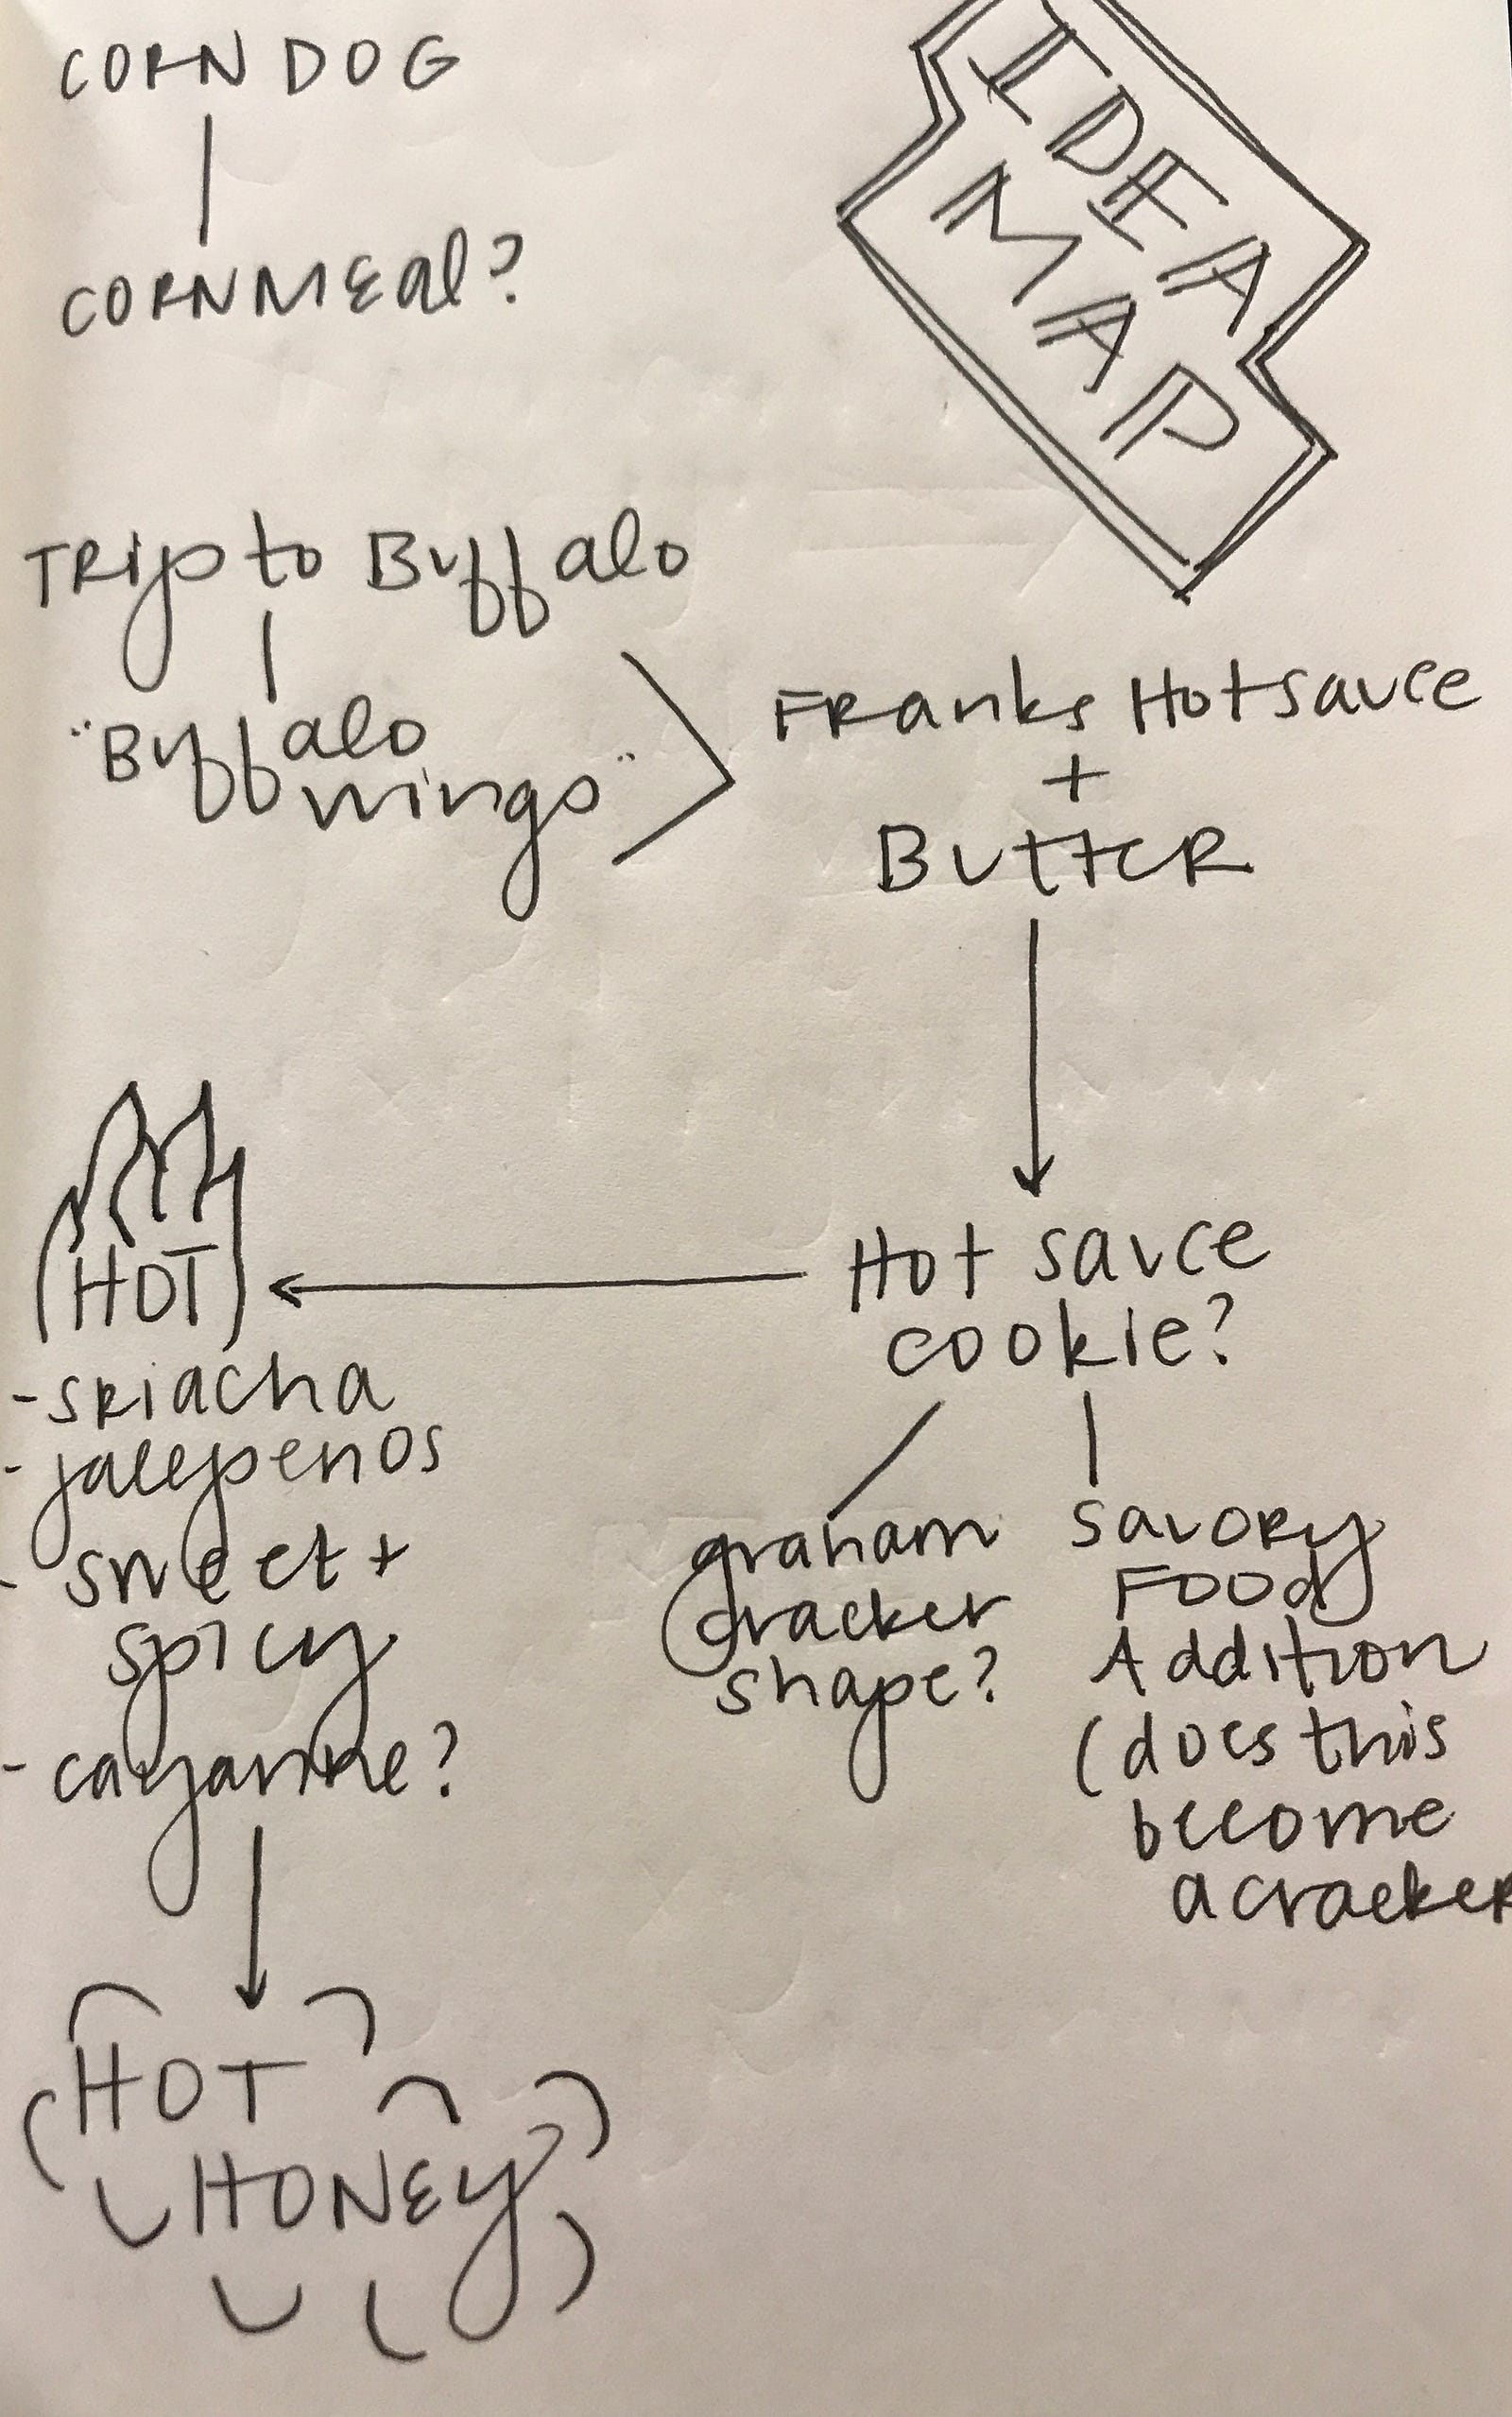 CORN DOG
CORNMEal?
IDEA
MAP
TRip to Buffalo
"Buffalo
wings"
FRanks Hotsauce
+
ButteR
Hot sauce
cookie?
HOT
- sRiacha
- jalepenos
- sweet +
spicy
- cayanne?
graham
cracker
shape?
savoRy
Food
Addition
(does this
become
a crackeR
HOT
HONEy